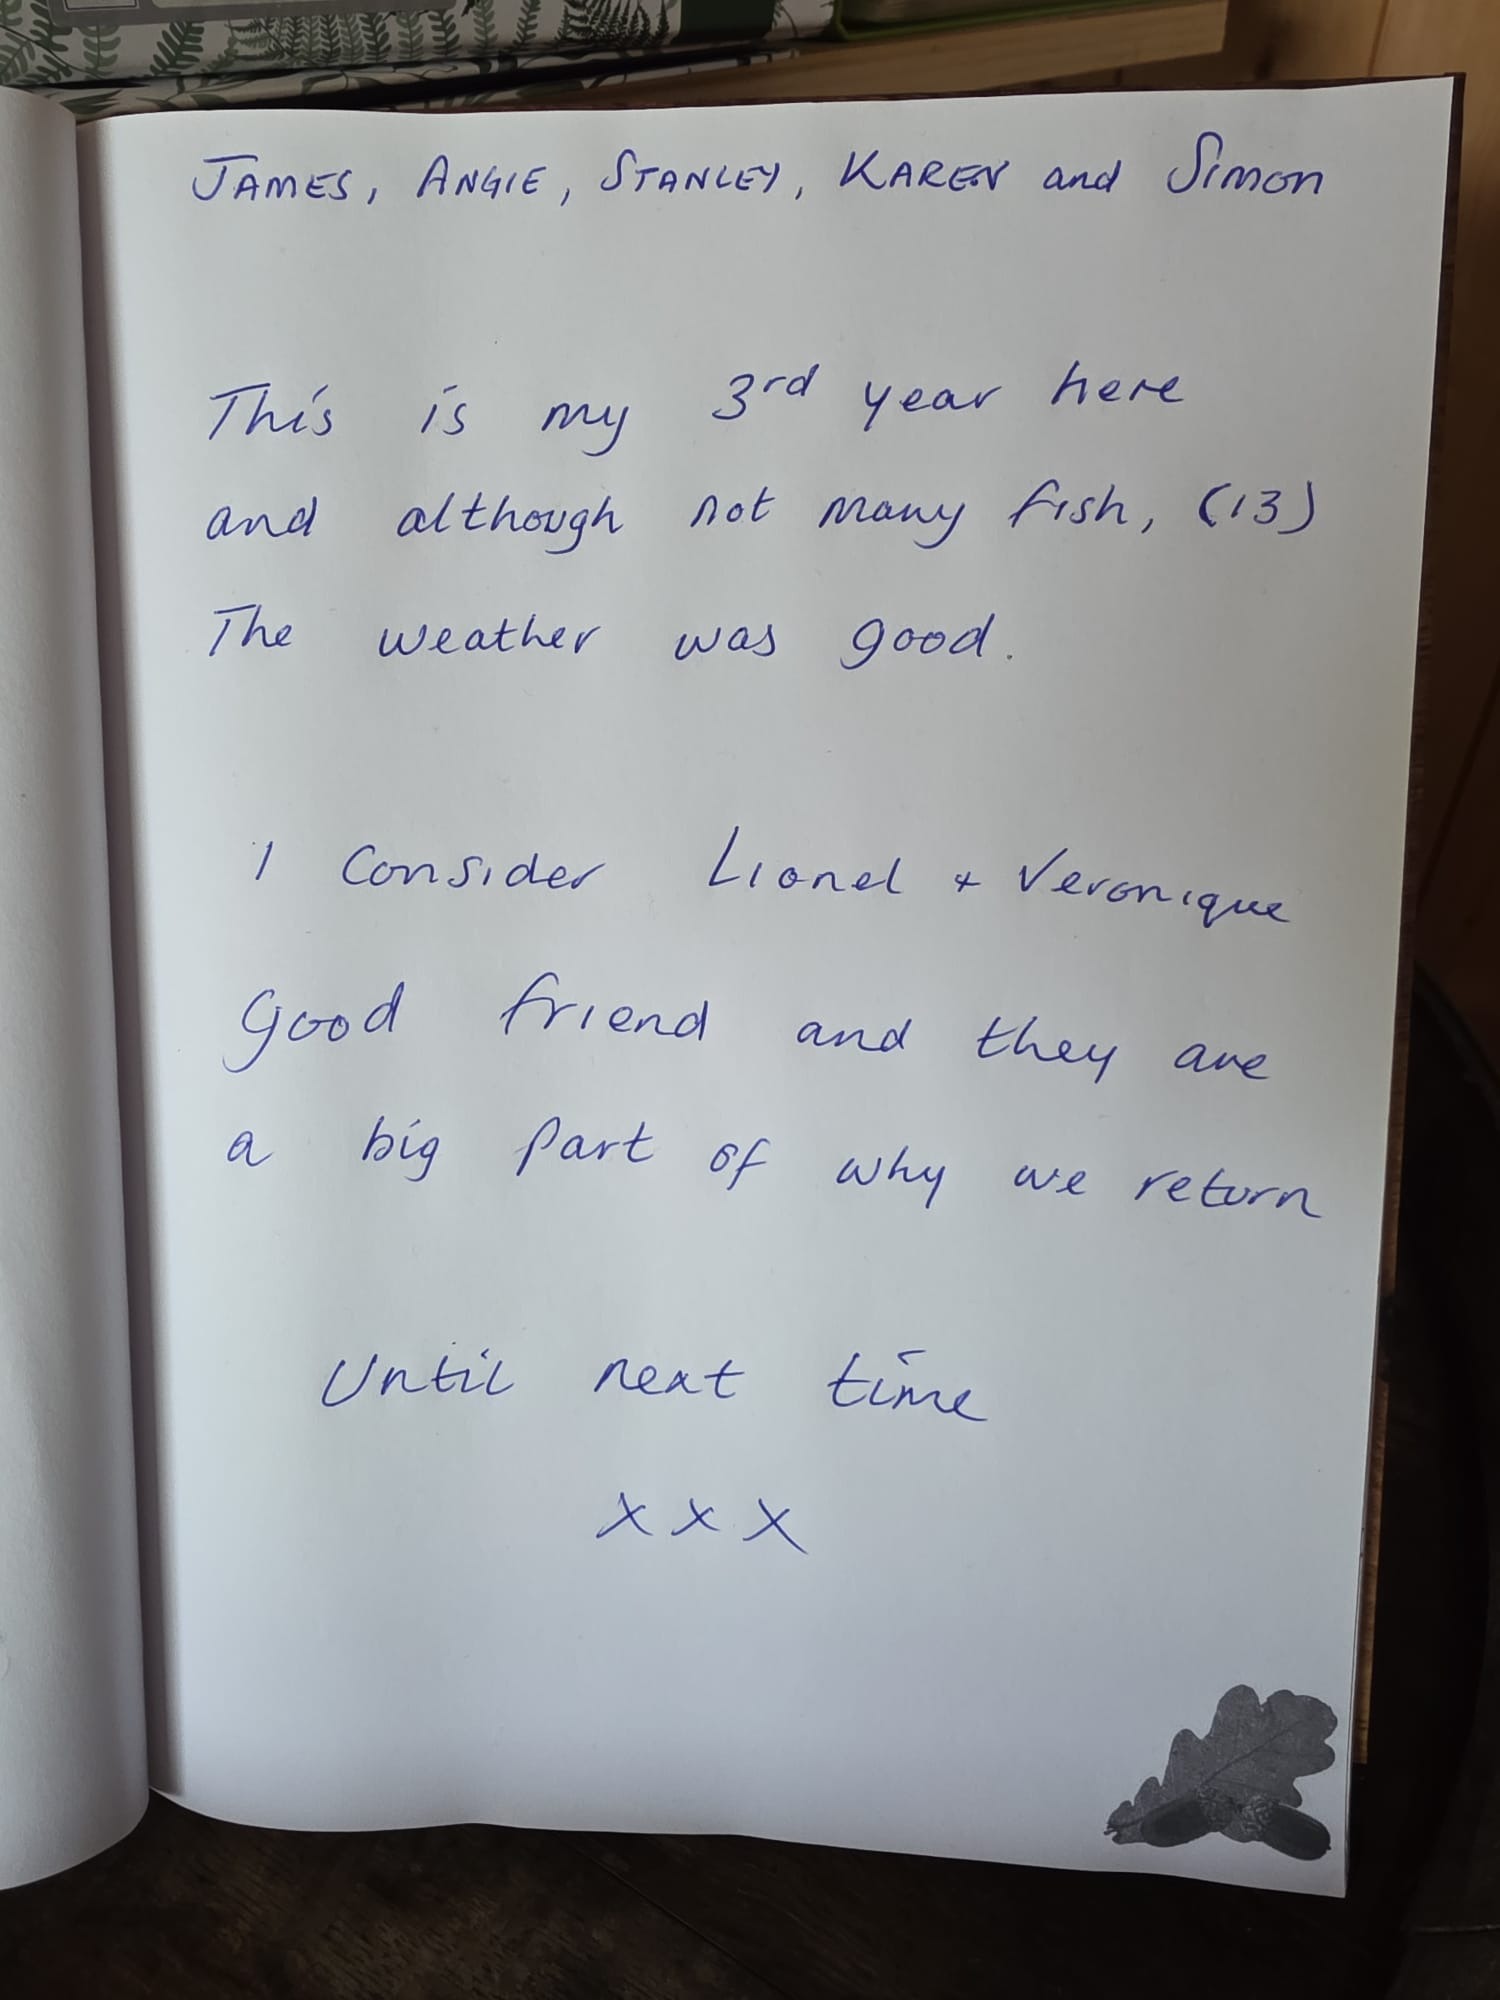 JAMES, ANGIE, STANLEY, KAREN and Simon
This is my 3rd year here
and although not many fish, (13)
The weather was good.
I Consider Lionel + Veronique
Good friend and they are
a big part of why we return
Until next time
x x x